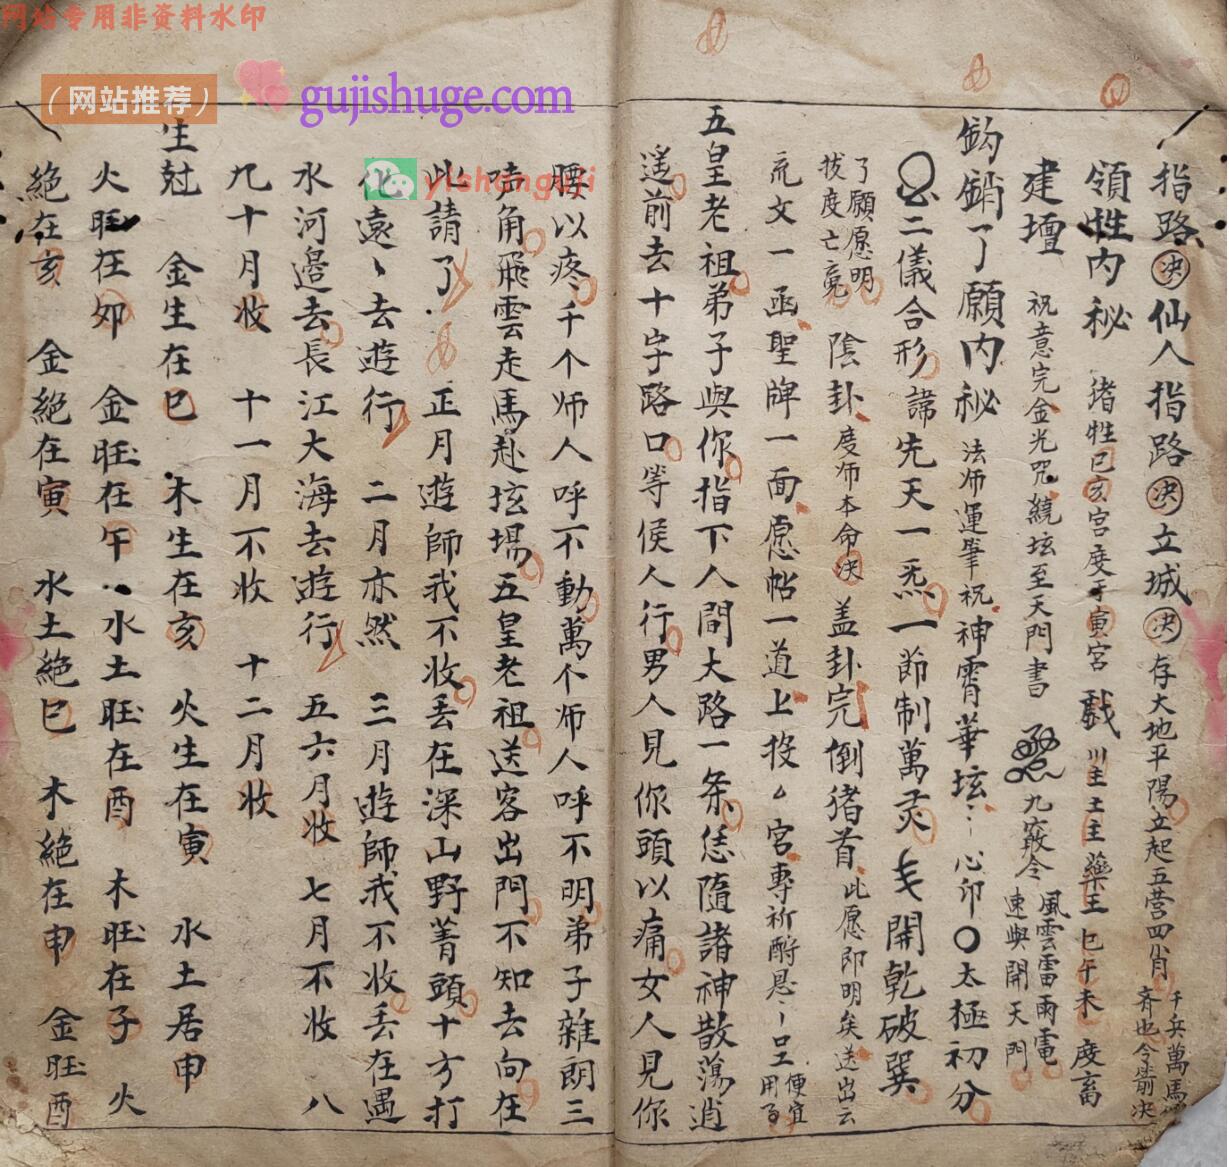 网站专用非资料水印
（网站推荐）
gujishuge.com
yishanguji
指路决仙人指路决立城决存大地平陽立起五营四肖千兵萬馬齐也令箭决
領牲内秘 猪牲巳亥宫度于寅宫 戲川主土主藥王巳午未度畜
建壇 祝意完金光咒繞坛至天門書 九竅令風雲雷雨電速與開天門
鈎銷了願内秘法师運筆祝神霄華坛⺀心印〇太極初分
二儀合形諱先天一炁一節制萬灵 開乾破巽
了願愿明拔度亡魂 陰卦度师本命决盖卦完倒猪首此愿即明矣送出云
疏文一函聖牌一面愿帖一道上投厶宫專祈酧恩
便宜用
五皇老祖弟子與你指下人間大路一条恁隨諸神散蕩逍
遥前去十字路口等侯人行男人見你頭以痛女人見你
腰以疼千个师人呼不動萬个师人呼不明弟子雑朗三
声角飛雲走馬赴坛場五皇老祖送客出門不知去向在
此請了 正月遊師我不收丢在深山野菁頭十方打
化遠⺀去遊行 二月亦然 三月遊師我不收丢在遇
水河邉去長江大海去遊行 五六月收 七月不收 八
九十月收 十一月不收 十二月收
生尅 金生在巳 木生在亥 火生在寅 水土居申
火旺在卯 金旺在午 水土旺在酉 木旺在子 火
絶在亥 金絶在寅 水土絶巳 木絶在申 金旺酉